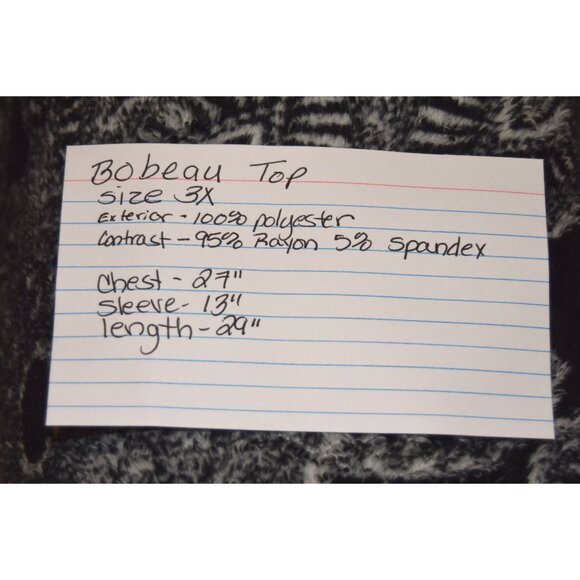 Bobeau Top
Size 3X
Exterior - 100% polyester
Contrast - 95% Rayon 5% spandex
Chest - 27"
Sleeve - 13"
length - 29"